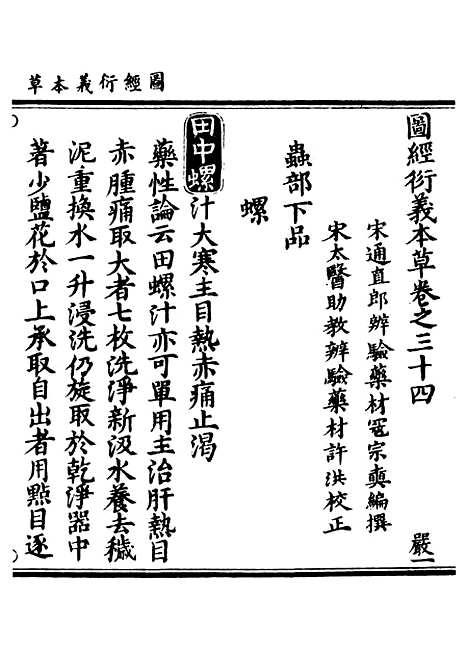 圖經衍義本草
圖經衍義本草卷之三十四 嚴一
宋通直郎辨驗藥材寇宗奭編撰
宋太醫助教辨驗藥材許洪校正
蟲部下品
螺
田中螺汁大寒主目熱赤痛止渴
藥性論云田螺汁亦可單用主治肝熱目
赤腫痛取大者七枚洗淨新汲水養去穢
泥重換水一升浸洗仍旋取於乾淨器中
著少鹽花於口上承取自出者用點目逐